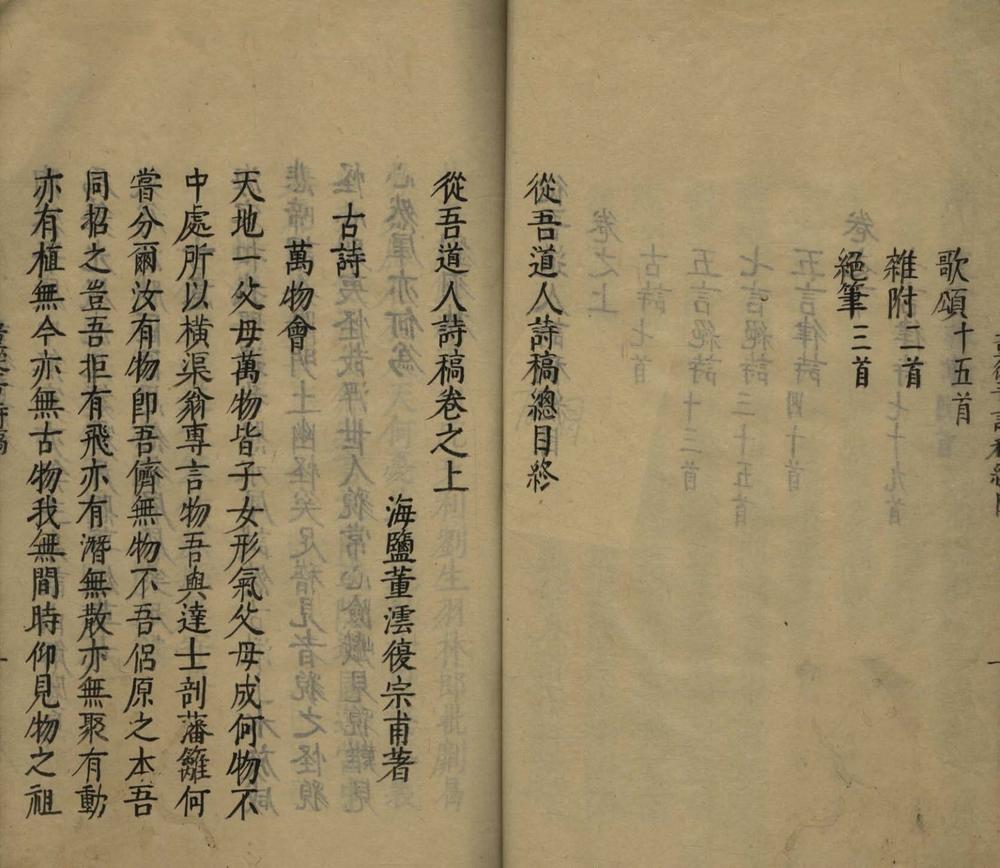 歌頌十五首
雜附二首
絕筆三首
從吾道人詩稿總目終
從吾道人詩稿卷之上
海鹽董澐復宗甫著
古詩
萬物會
天地一父母萬物皆子女形氣父母成何物不
中處所以橫渠翁專言物吾與達士剖藩籬何
嘗分爾汝有物即吾儕無物不吾侶原之本吾
同招之豈吾拒有飛亦有潛無散亦無聚有動
亦有植無今亦無古物我無間時仰見物之祖